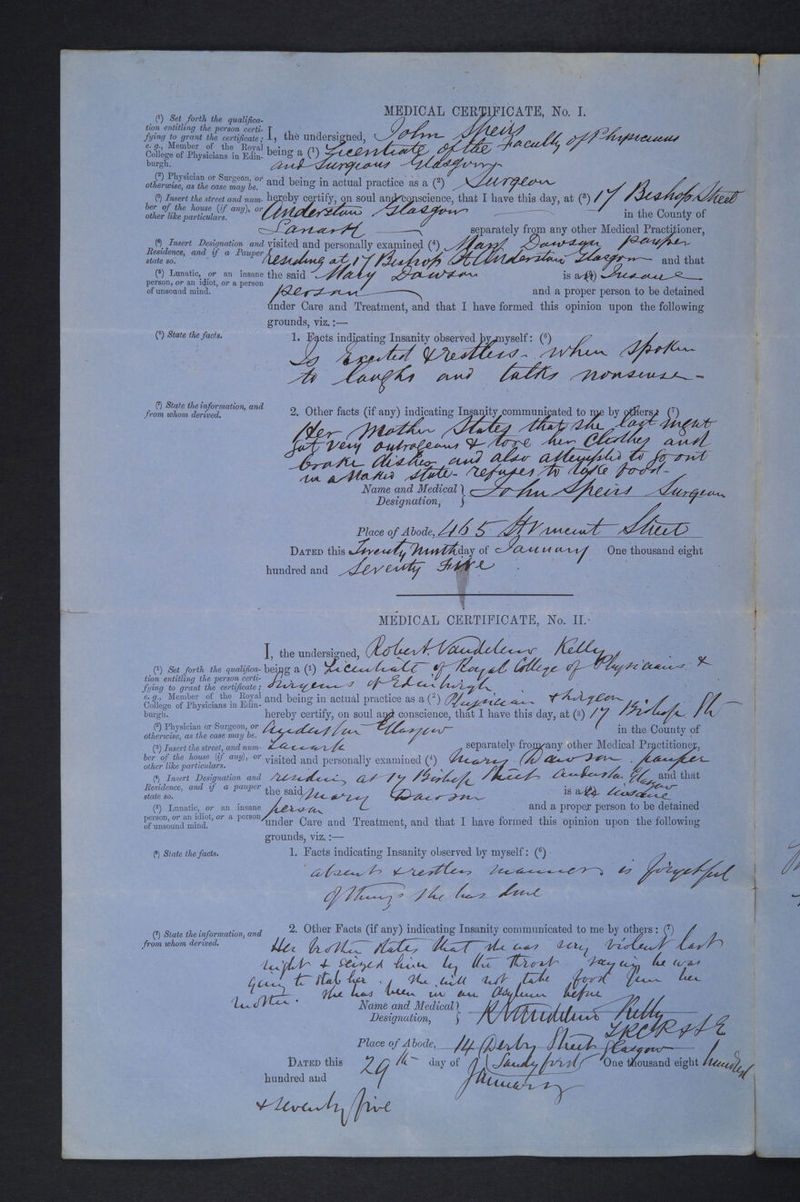 MEDICAL CERTIFICATE, No. I.
(¹) Set forth the qualifica-
tion entitling the person certi-
fying to grant the certificate;
e. g., Member of the Royal
College of Physicians in Edin-
burgh.
I, the undersigned, John Speirs
being a (¹) Licentiate of the Faculty of Physicians
and Surgeons Glasgow
(²) Physician or Surgeon, or
otherwise, as the case may be.
and being in actual practice as a (²) Surgeon
(³) Insert the street and num-
ber of the house (if any), or
other like particulars.
hereby certify, on soul and conscience, that I have this day, at (³) 17 Bishop Street
Anderston Glasgow in the County of
Lanark separately from any other Medical Practitioner,
(⁴) Insert Designation and
Residence, and if a Pauper
state so.
visited and personally examined (⁴) Mary Dawson pauper
residing at 17 Bishop St Anderston Glasgow and that
(⁵) Lunatic, or an insane
person, or an idiot, or a person
of unsound mind.
the said Mary Dawson is a (⁵) Insane
person and a proper person to be detained
under Care and Treatment, and that I have formed this opinion upon the following
grounds, viz.:—
(⁶) State the facts.
1. Facts indicating Insanity observed by myself: (⁶)
Is Excited & restless - when spoken
to laughs and talks nonsense -
(⁷) State the information, and
from whom derived.
2. Other facts (if any) indicating Insanity communicated to me by others: (⁷)
Her Mother States that she last night
got very outrageous & tore her Clothes and
broke dishes and also attempted to go out
in a Naked state - refuses to take food -
Name and Medical
Designation,
John Speirs Surgeon
Place of Abode, 465 St Vincent Street
DATED this Twenty Ninth day of January One thousand eight
hundred and Seventy Five
MEDICAL CERTIFICATE, No. II.
I, the undersigned, Robert Vandeleur Kelly
(¹) Set forth the qualifica-
tion entitling the person certi-
fying to grant the certificate;
e. g., Member of the Royal
College of Physicians in Edin-
burgh.
being a (¹) Licentiate of Royal College of Physicians &
Surgeons of Edinburgh
and being in actual practice as a (²) Physician & Surgeon
(²) Physician or Surgeon, or
otherwise, as the case may be.
hereby certify, on soul and conscience, that I have this day, at (³) 17 Bishop St
Anderston Glasgow in the County of
(³) Insert the street, and num-
ber of the house (if any), or
other like particulars.
Lanark separately from any other Medical Practitioner,
visited and personally examined (⁴) Mary Dawson pauper
(⁴) Insert Designation and
Residence, and if a pauper
state so.
residing at 17 Bishop Street Anderston Glasgow and that
the said Mary Dawson is a (⁵) insane
(⁵) Lunatic, or an insane
person, or an idiot, or a person
of unsound mind.
person and a proper person to be detained
under Care and Treatment, and that I have formed this opinion upon the following
grounds, viz.:—
(⁶) State the facts.
1. Facts indicating Insanity observed by myself: (⁶)
absent & restless manner, is forgetful
of things she has done
(⁷) State the information, and
from whom derived.
2. Other Facts (if any) indicating Insanity communicated to me by others: (⁷)
Her brother states that she was very violent last
night & seized him by the throat saying he was
going to stab her, she will not take food from her
mother. She has been in an Asylum before
Name and Medical
Designation,
R Vandeleur Kelly
LRCP & S E
Place of Abode, 14 Derby Street Glasgow
DATED this 29th day of January One thousand eight hundred
hundred and
& seventy five